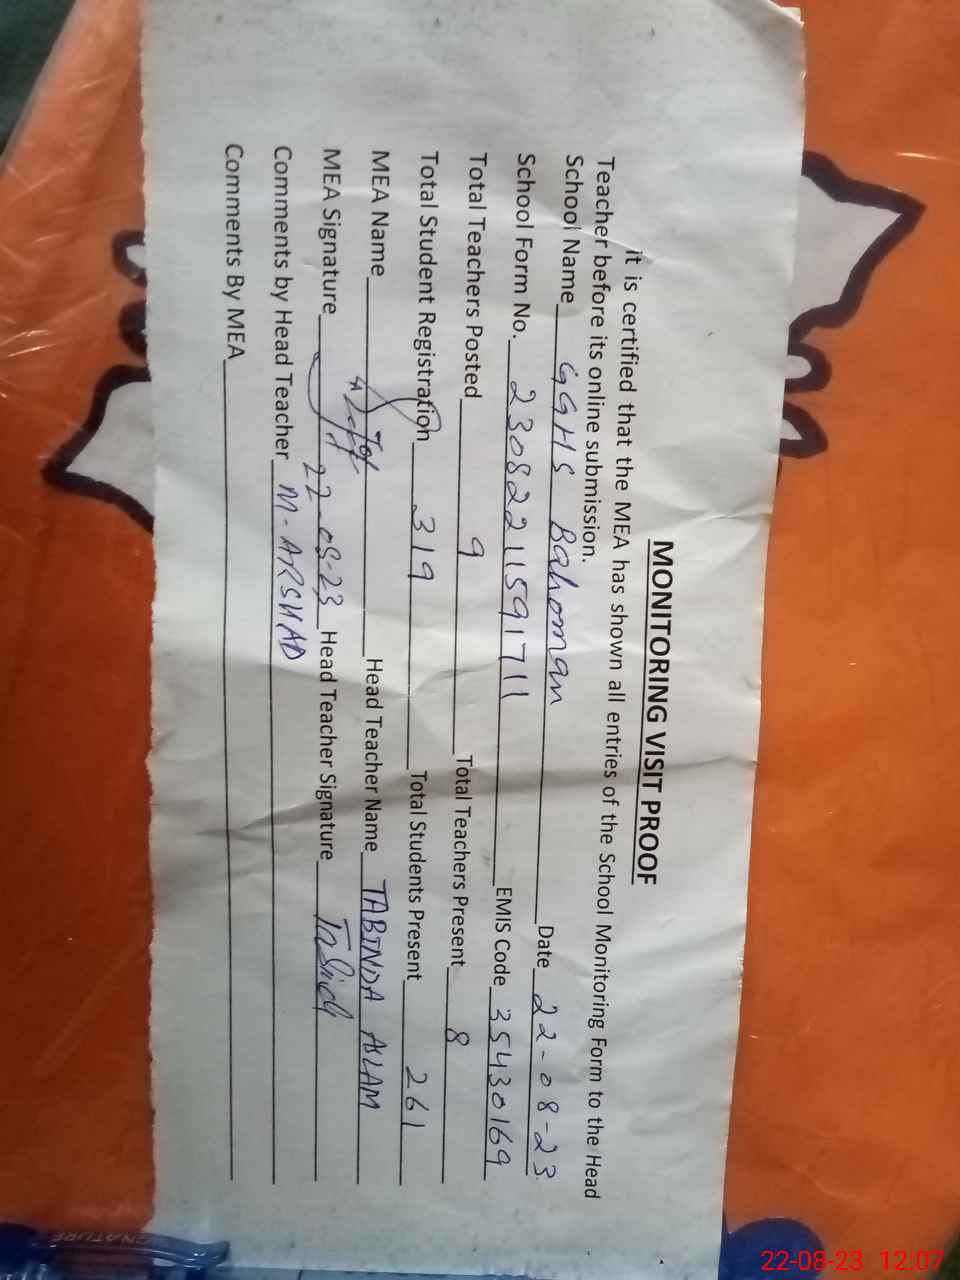 MONITORING VISIT PROOF
it is certified that the MEA has shown all entries of the School Monitoring Form to the Head
Teacher before its online submission.
School Name GGHS Bahoman Date 22-08-23
School Form No. 23082211591711 EMIS Code 35430169
Total Teachers Posted 9 Total Teachers Present 8
Total Student Registration 319 Total Students Present 261
MEA Name Head Teacher Name TABINDA ASLAM
MEA Signature 22-08-23 Head Teacher Signature
Comments by Head Teacher M-ARSHAD
Comments By MEA
SIGNATURE
22-08-23 12:07